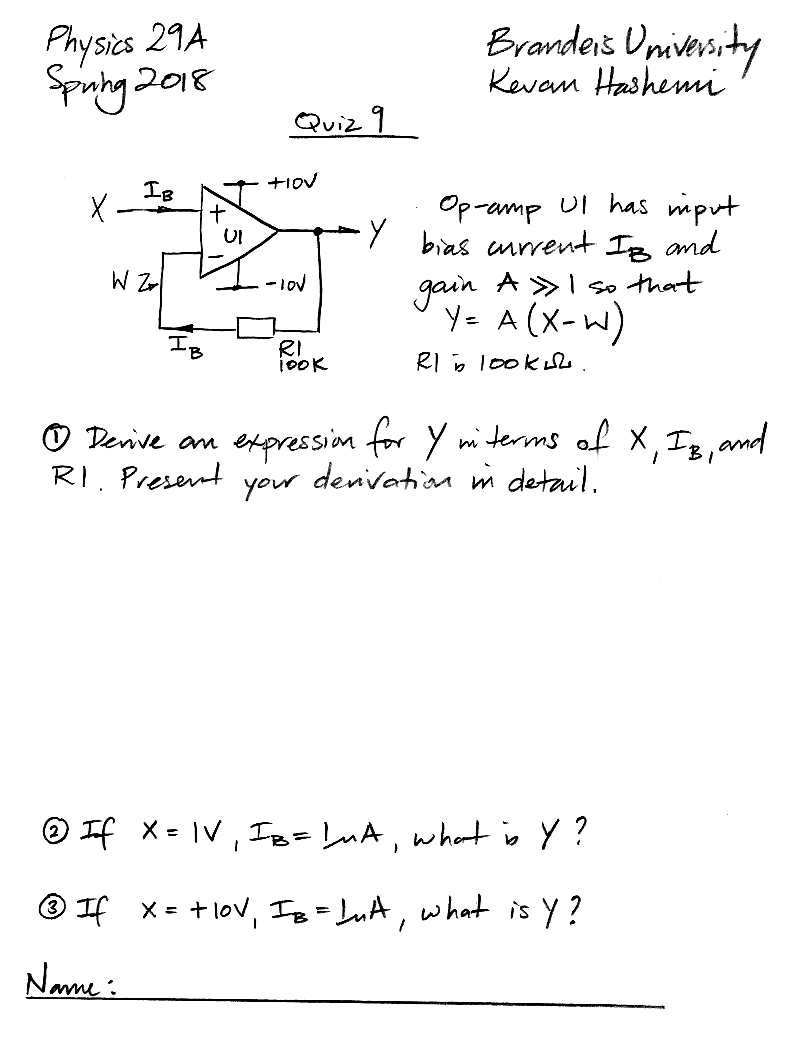 Physics 29A
Spring 2018
Brandeis University
Kevan Hashemi
Quiz 9
X
I_B
+10V
+
U1
−
Y
W
-10V
I_B
R1
100K
Op-amp U1 has input
bias current I_B and
gain A ≫ 1 so that
Y = A(X-W)
R1 is 100kΩ.
① Derive an expression for Y in terms of X, I_B, and
R1. Present your derivation in detail.
② If X = 1V, I_B = 1μA, what is Y?
③ If X = +10V, I_B = 1μA, what is Y?
Name: